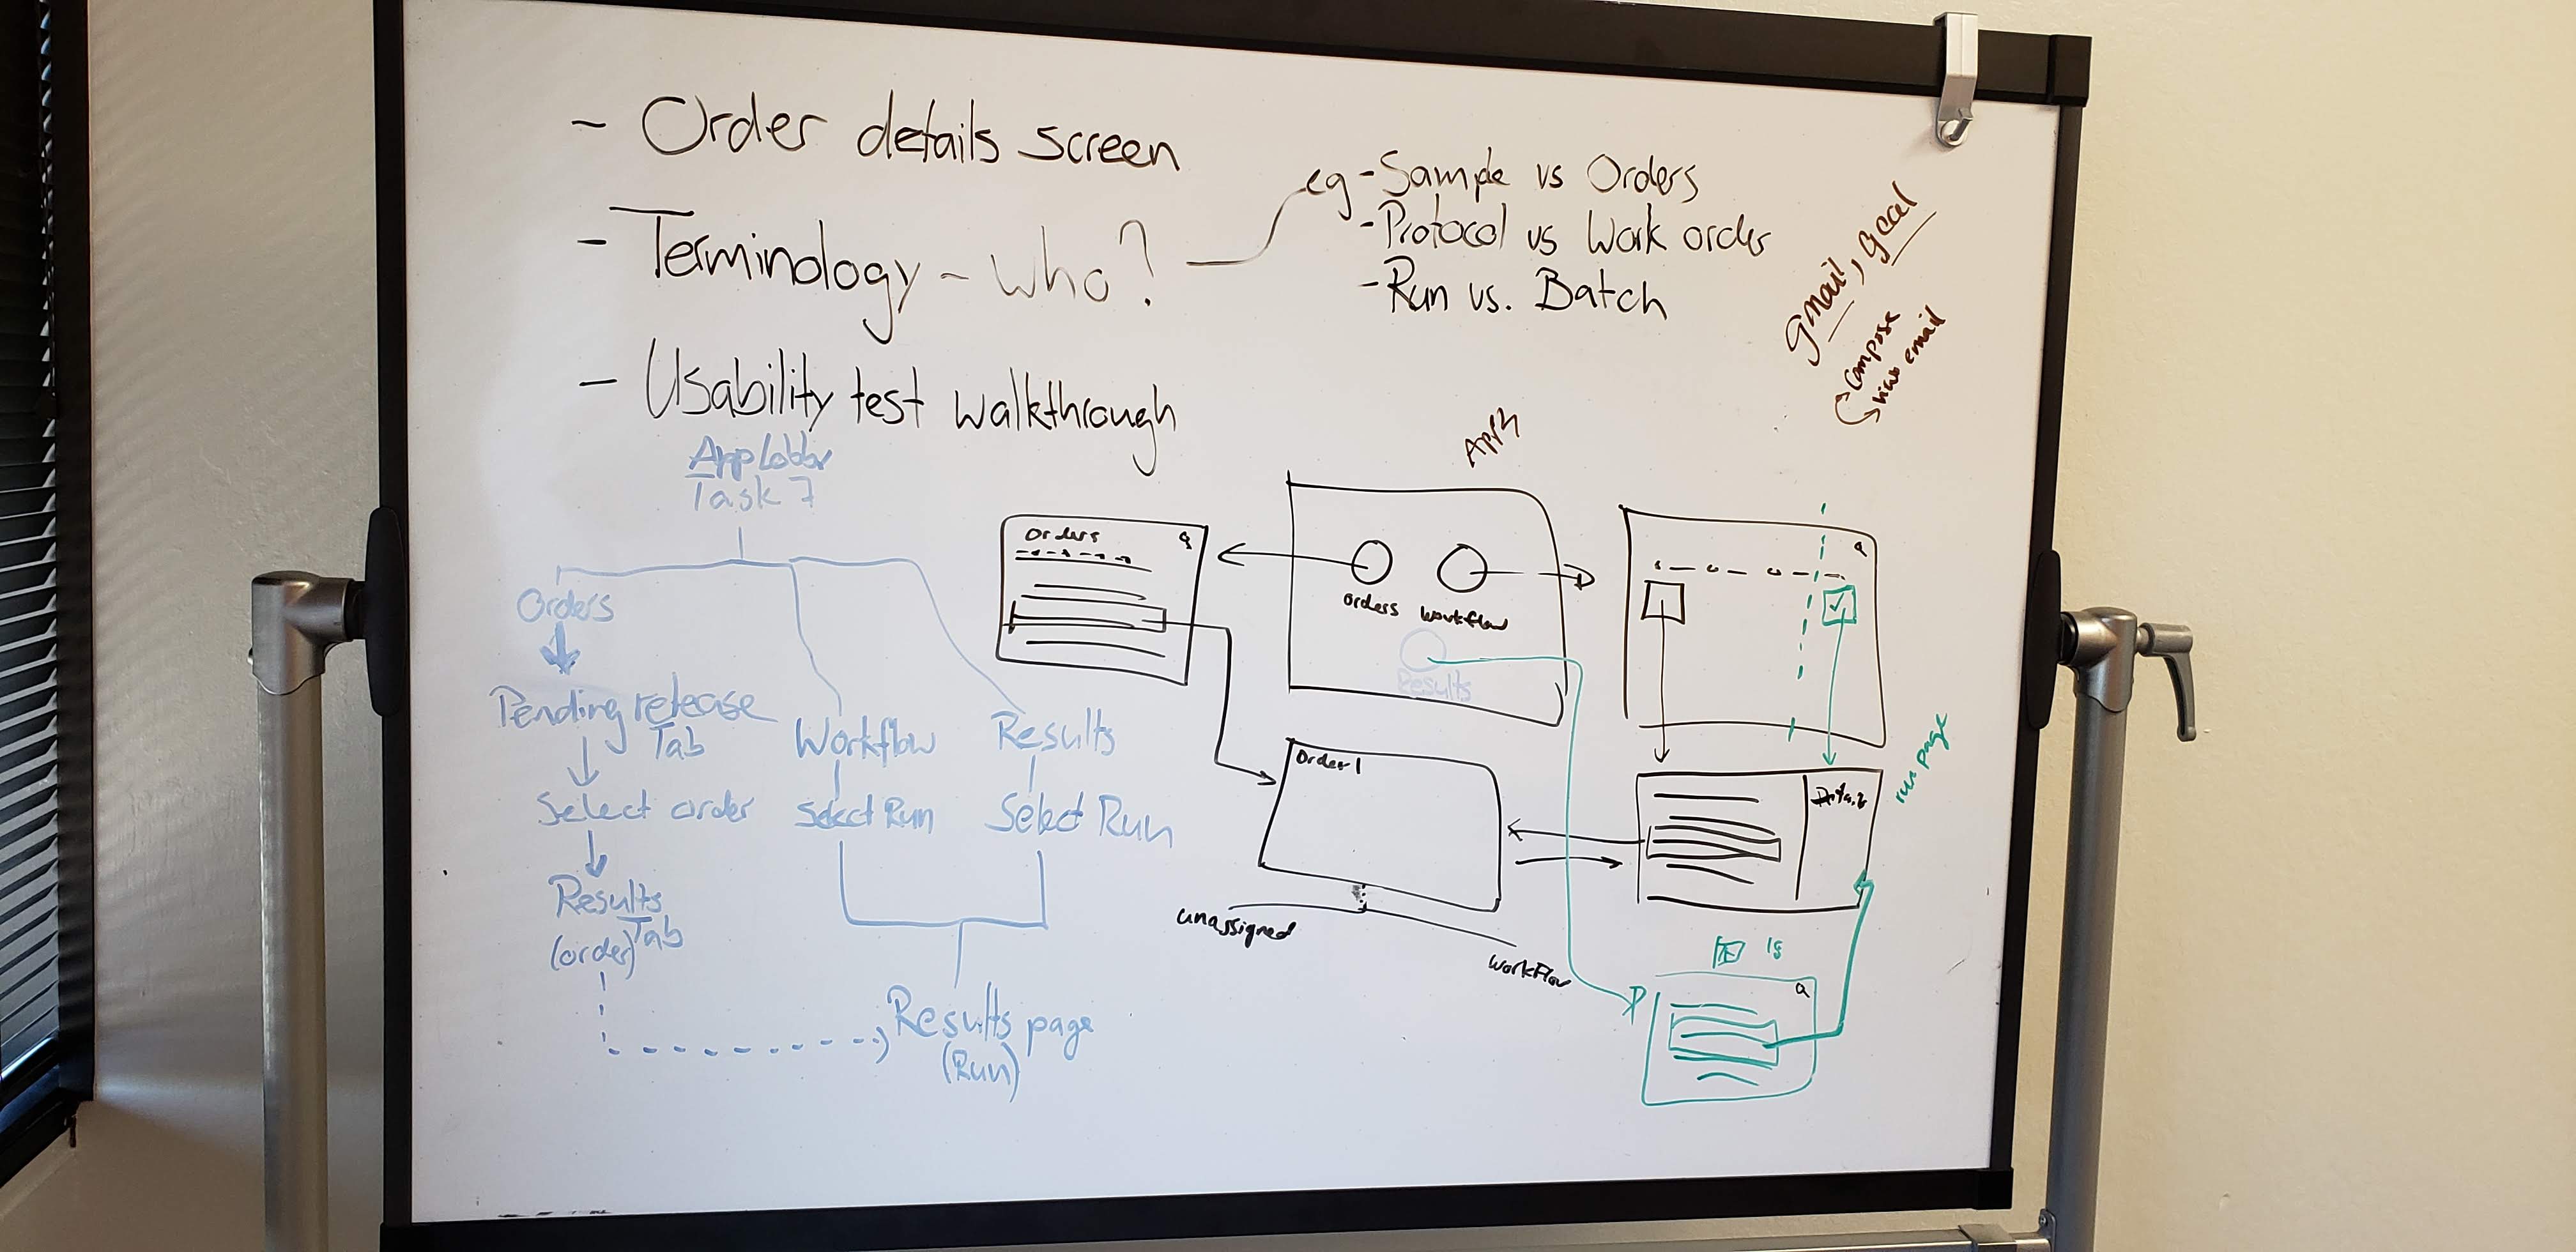 - Order details screen
- Terminology - who?
eg - Sample vs Orders
- Protocol vs Work order
- Run vs. Batch
- Usability test walkthrough
gmail, gcal
compose
view email
App Lobby
Task 7
Orders
Pending release
Tab
Select order
Results
Tab
(order)
Workflow
Select Run
Results
Select Run
Results page
(Run)
Orders
Orders
Workflow
Results
Order 1
unassigned
workflow
Details
run page